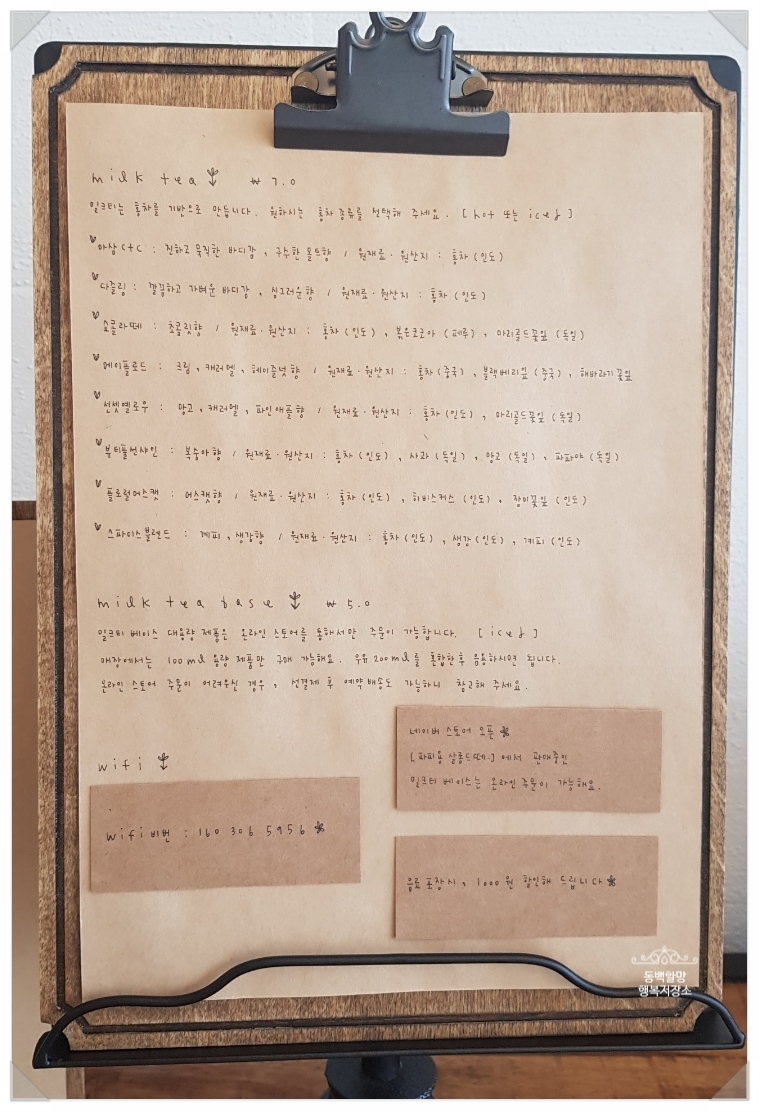 milk tea ₩ 7.0
밀크티는 홍차를 기반으로 만듭니다. 원하시는 홍차 종류를 선택해 주세요. [hot 또는 iced]
아삼 CTC : 진하고 묵직한 바디감, 구수한 몰트향 / 원재료·원산지 : 홍차 (인도)
다즐링 : 깔끔하고 가벼운 바디감, 싱그러운향 / 원재료·원산지 : 홍차 (인도)
쇼콜라떼 : 초콜릿향 / 원재료·원산지 : 홍차 (인도), 볶은코코아 (페루), 마리골드꽃잎 (독일)
메이플로드 : 크림, 캐러멜, 헤이즐넛향 / 원재료·원산지 : 홍차 (중국), 블랙베리잎 (중국), 해바라기꽃잎
선셋옐로우 : 망고, 캐러멜, 파인애플향 / 원재료·원산지 : 홍차 (인도), 마리골드꽃잎 (독일)
뷰티풀선샤인 : 복숭아향 / 원재료·원산지 : 홍차 (인도), 사과 (독일), 망고 (독일), 파파야 (독일)
플로럴머스캣 : 머스캣향 / 원재료·원산지 : 홍차 (인도), 히비스커스 (인도), 장미꽃잎 (인도)
스파이스블렌드 : 계피, 생강향 / 원재료·원산지 : 홍차 (인도), 생강 (인도), 계피 (인도)
milk tea base ₩ 5.0
밀크티 베이스 대용량 제품은 온라인 스토어를 통해서만 주문이 가능합니다. [iced]
매장에서는 100ml 용량 제품만 구매 가능해요. 우유 200ml를 혼합한 후 음용하시면 됩니다.
온라인 스토어 주문이 어려우신 경우, 선결제 후 예약배송도 가능하니 참고해 주세요.
네이버 스토어 오픈
[파피용 살롱드떼] 에서 판매중인
밀크티 베이스는 온라인 주문이 가능해요.
wifi
wifi 비번 : 160 306 5956
음료 포장시, 1000원 할인해 드립니다
동백할망
행복저장소